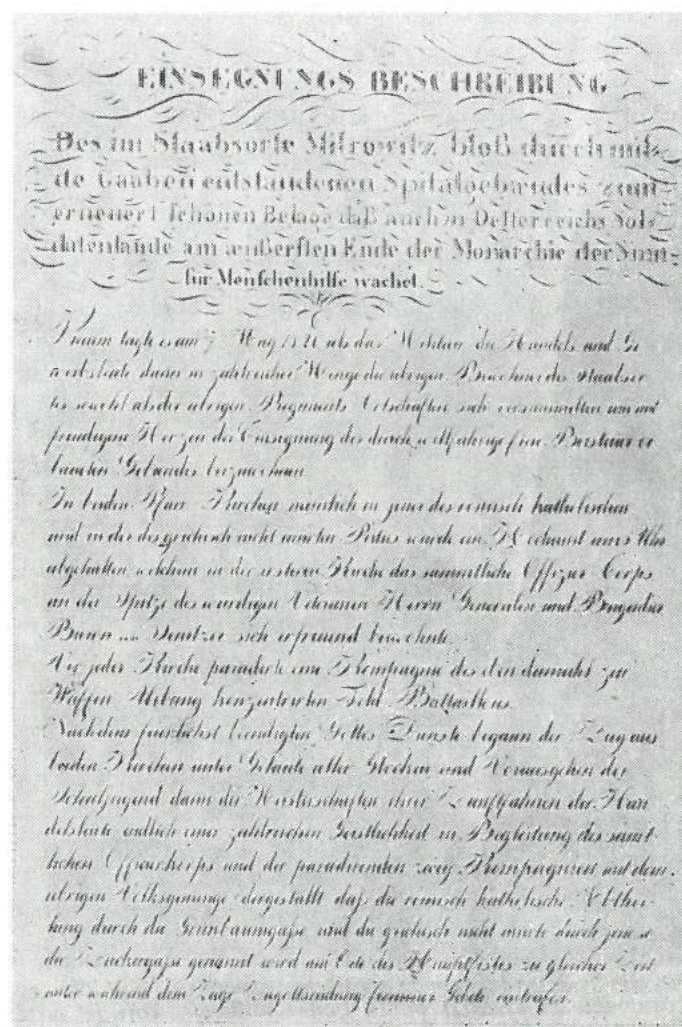 EINSEGNUNGS BESCHREIBUNG
Des im Staabsorte Mitrowitz bloß durch mil-
de Gaaben entstandenen Spitalgebäudes zum
erneuert schönen Belage daß auch in Oesterreichs Sol-
datenlande am æußersten Ende der Monarchie der Sinn
für Menschenhilfe wachet.
Kaum tagte es am 7 May als das Militair die Handels und Ge
werbsleute dann in zahlreicher Menge die übrigen Bewohner des Staabsor
tes sowohl als der übrigen Regiments Ortschaften sich versammelten um mit
freudigem Herzen der Einsegnung des durch er
bauten Gebäudes
In beiden Pfarr Kirchen nämlich in jener des römisch katholischen
und in der des griechisch nicht unirten Ritus wurde ein Hochamt um Uhr
abgehalten welchem in der ersteren Kirche das sammtliche Offizier Corps
an der Spitze des würdigen Veteranen Herrn Generalen und Brigadier
Baron sich
Vor jeder Kirche paradirte eine Kompagnie des eben damals zur
Waffen Uebung konzentrirten Feld Battaillons
Nachdem beendigten Gottes Dienste begann der Zug aus
beiden Kirchen unter Geläute aller Glocken und Vorausgehen der
Schuljugend dann der mit ihren Zunftfahnen der Han
delsleute endlich einer zahlreichen Geistlichkeit in Begleitung des sämt
lichen Offizierkorps und der paradirenden zwey Kompagnien mit dem
übrigen Volksgemenge dergestallt daß die römisch katholische Abthei
lung durch die und die griechisch nicht unirte durch jene so
die genannt wird am Ende des zu gleicher Zeit
unter während dem Zuge frommer Gebete eintrafen.